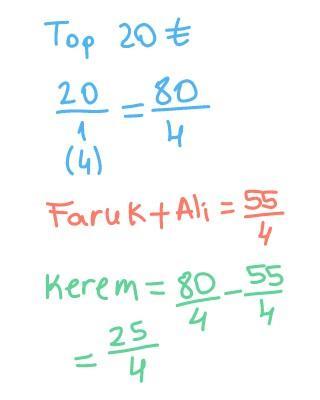 Top 20 ₺
20/1 = 80/4
(4)
Faruk + Ali = 55/4
Kerem = 80/4 - 55/4
= 25/4